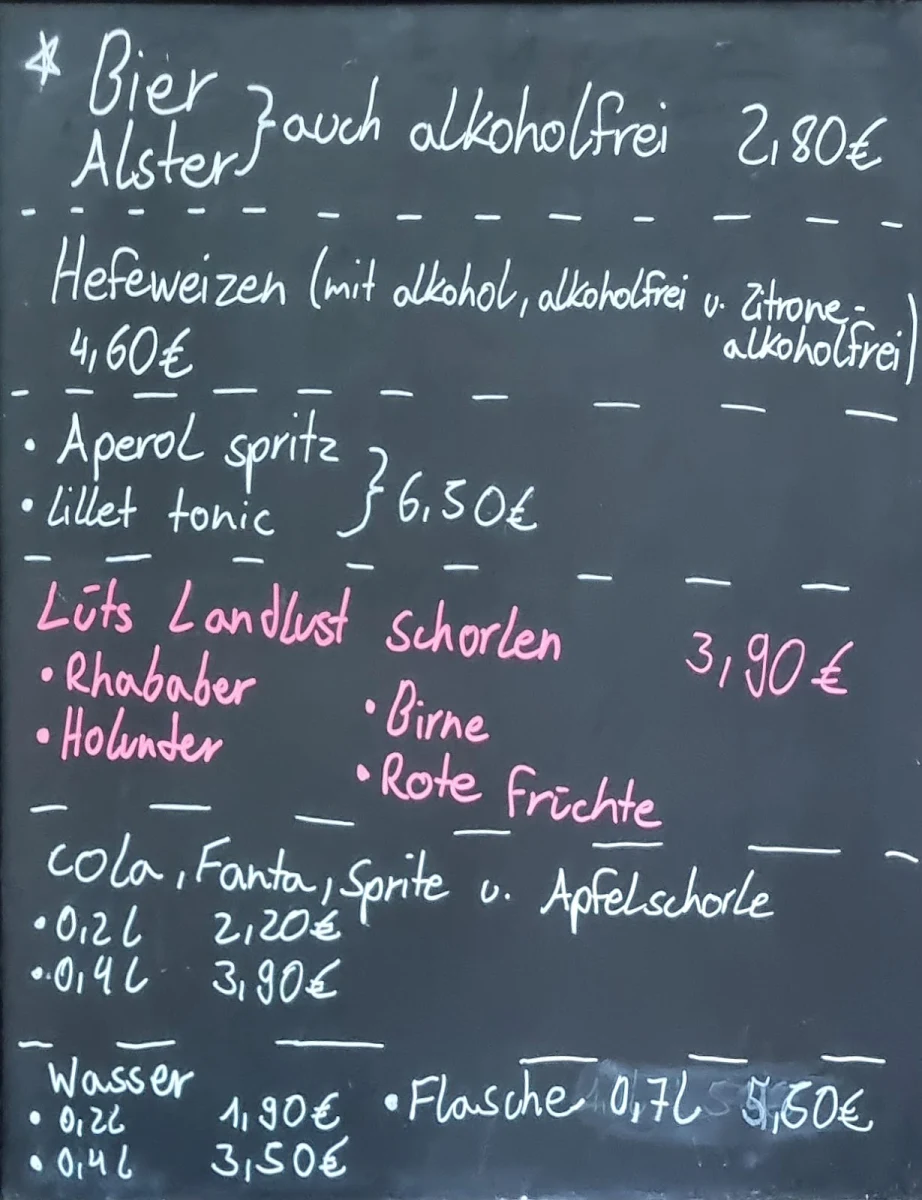 * Bier
Alster } auch alkoholfrei 2,80€
Hefeweizen (mit alkohol, alkoholfrei u. Zitrone-
alkoholfrei)
4,60€
• Aperol spritz
• Lillet tonic } 6,50€
Lüts Landlust Schorlen 3,90€
• Rhababer
• Holunder
• Birne
• Rote Früchte
Cola, Fanta, Sprite u. Apfelschorle
• 0,2l 2,20€
• 0,4l 3,90€
Wasser
• 0,2l 1,90€
• 0,4l 3,50€
• Flasche 0,7l 5,60€